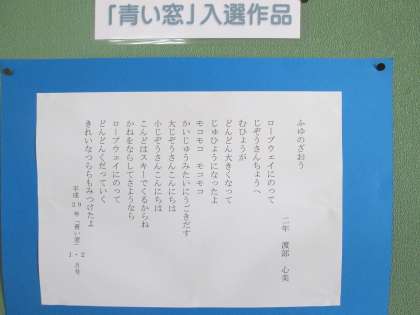 「青い窓」入選作品
ふゆのざおう
二年　渡部　心美
ロープウェイにのって
じぞうさんちょうへ
むひょうが
どんどん大きくなって
じゅひょうになったよ
モコモコ　モコモコ
かいじゅうみたいにうごきだす
大じぞうさんこんにちは
小じぞうさんこんにちは
こんどはスキーでくるからね
かねをならしてさようなら
ロープウェイにのって
どんどんくだっていく
きれいなつららもみつけたよ
平成29年「青い窓」1・2月号